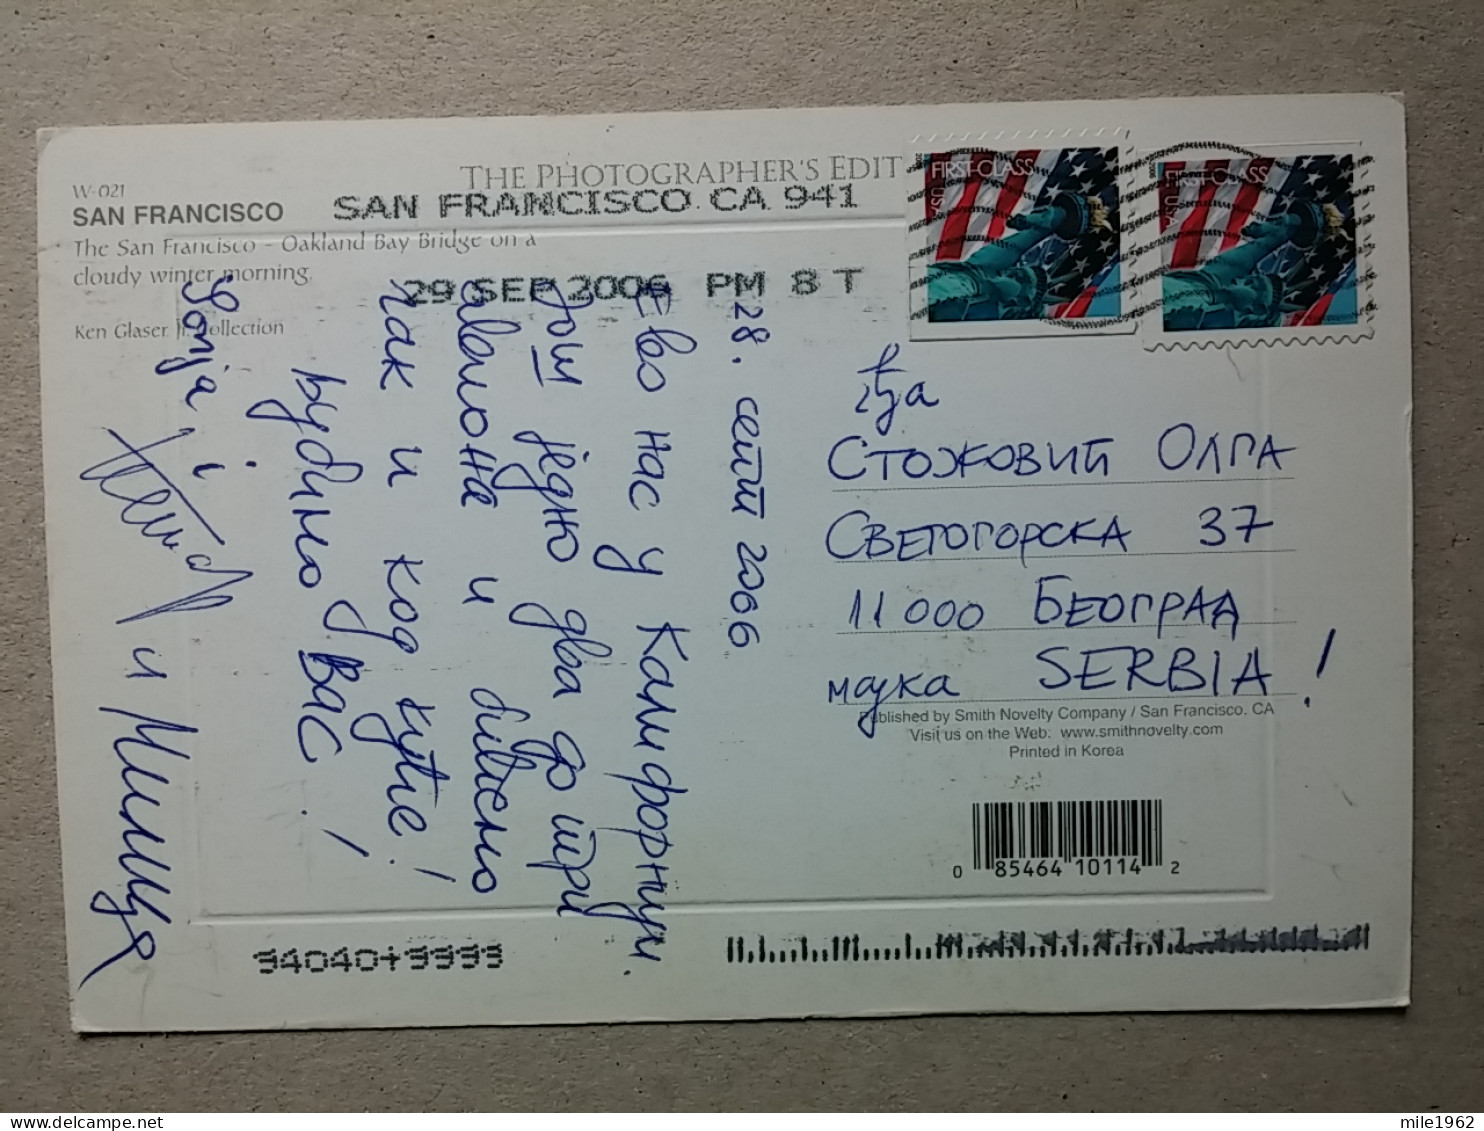 THE PHOTOGRAPHER'S EDIT
W-021
SAN FRANCISCO
The San Francisco - Oakland Bay Bridge on a
cloudy winter morning.
Ken Glaser Jr. Collection
SAN FRANCISCO CA 941
29 SEP 2006 PM 8 T
FIRST-CLASS
USA
FIRST-CLASS
USA
28. септ 2006
Ево нас у Калифорнији.
Још једно два до три
авиона и бићемо
чак и код куће!
Љубимо ВАС!
Sonja i
и Милица
гђа
Стожовић Олга
Светогорска 37
11000 Београд
мајка SERBIA!
Published by Smith Novelty Company / San Francisco, CA
Visit us on the Web: www.smithnovelty.com
Printed in Korea
0 85464 10114 2
94040+9999
mile1962